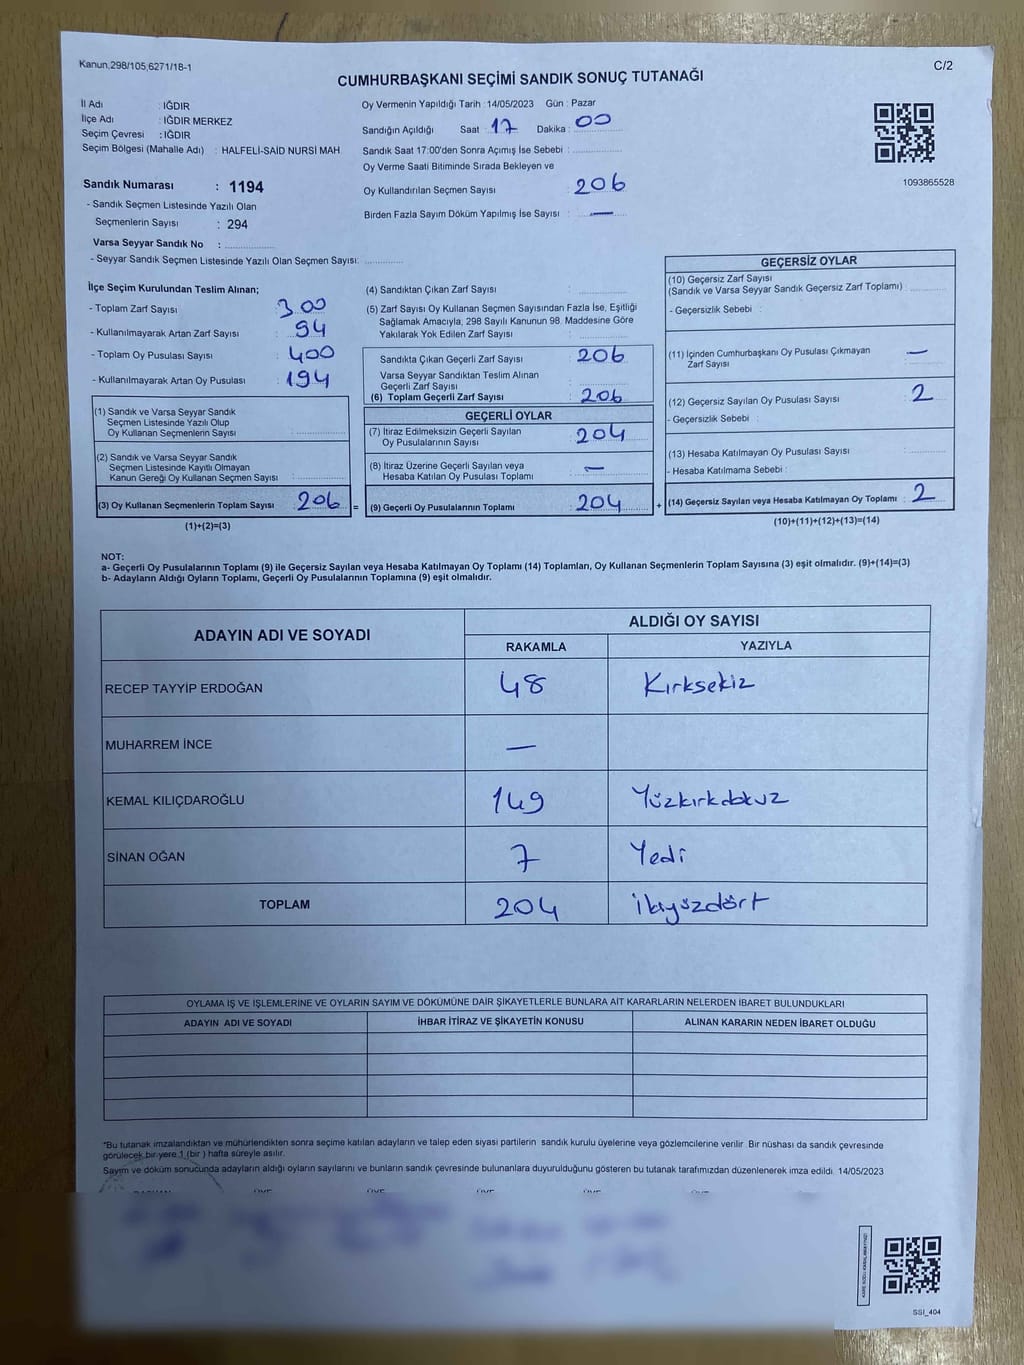 Kanun,298/105,6271/18-1
C/2
CUMHURBAŞKANI SEÇİMİ SANDIK SONUÇ TUTANAĞI
İl Adı : IĞDIR
İlçe Adı : IĞDIR MERKEZ
Seçim Çevresi : IĞDIR
Seçim Bölgesi (Mahalle Adı) : HALFELİ-SAİD NURSİ MAH.
Sandık Numarası : 1194
- Sandık Seçmen Listesinde Yazılı Olan
Seçmenlerin Sayısı : 294
Varsa Seyyar Sandık No :
- Seyyar Sandık Seçmen Listesinde Yazılı Olan Seçmen Sayısı:
Oy Vermenin Yapıldığı Tarih : 14/05/2023 Gün : Pazar
Sandığın Açıldığı Saat : 17 Dakika : 00
Sandık Saat 17:00'den Sonra Açımış İse Sebebi :
Oy Verme Saati Bitiminde Sırada Bekleyen ve
Oy Kullandırılan Seçmen Sayısı : 206
Birden Fazla Sayım Döküm Yapılmış İse Sayısı : —
1093865528
İlçe Seçim Kurulundan Teslim Alınan;
- Toplam Zarf Sayısı : 300
- Kullanılmayarak Artan Zarf Sayısı : 94
- Toplam Oy Pusulası Sayısı : 400
- Kullanılmayarak Artan Oy Pusulası : 194
(1) Sandık ve Varsa Seyyar Sandık
Seçmen Listesinde Yazılı Olup
Oy Kullanan Seçmenlerin Sayısı :
(2) Sandık ve Varsa Seyyar Sandık
Seçmen Listesinde Kayıtlı Olmayan
Kanun Gereği Oy Kullanan Seçmen Sayısı :
(3) Oy Kullanan Seçmenlerin Toplam Sayısı : 206 =
(1)+(2)=(3)
(4) Sandıktan Çıkan Zarf Sayısı :
(5) Zarf Sayısı Oy Kullanan Seçmen Sayısından Fazla İse, Eşitliği
Sağlamak Amacıyla, 298 Sayılı Kanunun 98. Maddesine Göre
Yakılarak Yok Edilen Zarf Sayısı :
Sandıkta Çıkan Geçerli Zarf Sayısı : 206
Varsa Seyyar Sandıktan Teslim Alınan
Geçerli Zarf Sayısı :
(6) Toplam Geçerli Zarf Sayısı : 206
GEÇERLİ OYLAR
(7) İtiraz Edilmeksizin Geçerli Sayılan
Oy Pusulalarının Sayısı : 204
(8) İtiraz Üzerine Geçerli Sayılan veya
Hesaba Katılan Oy Pusulası Toplamı : —
(9) Geçerli Oy Pusulalarının Toplamı : 204 +
GEÇERSİZ OYLAR
(10) Geçersiz Zarf Sayısı
(Sandık ve Varsa Seyyar Sandık Geçersiz Zarf Toplamı) :
- Geçersizlik Sebebi :
(11) İçinden Cumhurbaşkanı Oy Pusulası Çıkmayan : —
Zarf Sayısı
(12) Geçersiz Sayılan Oy Pusulası Sayısı : 2
- Geçersizlik Sebebi :
(13) Hesaba Katılmayan Oy Pusulası Sayısı :
- Hesaba Katılmama Sebebi :
(14) Geçersiz Sayılan veya Hesaba Katılmayan Oy Toplamı : 2
(10)+(11)+(12)+(13)=(14)
NOT:
a- Geçerli Oy Pusulalarının Toplamı (9) ile Geçersiz Sayılan veya Hesaba Katılmayan Oy Toplamı (14) Toplamları, Oy Kullanan Seçmenlerin Toplam Sayısına (3) eşit olmalıdır. (9)+(14)=(3)
b- Adayların Aldığı Oyların Toplamı, Geçerli Oy Pusulalarının Toplamına (9) eşit olmalıdır.
ADAYIN ADI VE SOYADI ALDIĞI OY SAYISI
RAKAMLA YAZIYLA
RECEP TAYYİP ERDOĞAN 48 Kırksekiz
MUHARREM İNCE —
KEMAL KILIÇDAROĞLU 149 Yüzkırkdokuz
SİNAN OĞAN 7 Yedi
TOPLAM 204 ikiyüzdört
OYLAMA İŞ VE İŞLEMLERİNE VE OYLARIN SAYIM VE DÖKÜMÜNE DAİR ŞİKAYETLERLE BUNLARA AİT KARARLARIN NELERDEN İBARET BULUNDUKLARI
ADAYIN ADI VE SOYADI İHBAR İTİRAZ VE ŞİKAYETİN KONUSU ALINAN KARARIN NEDEN İBARET OLDUĞU
*Bu tutanak imzalandıktan ve mühürlendikten sonra seçime katılan adayların ve talep eden siyasi partilerin sandık kurulu üyelerine veya gözlemcilerine verilir. Bir nüshası da sandık çevresinde
görülecek bir yere 1 (bir ) hafta süreyle asılır.
Sayım ve döküm sonucunda adayların aldığı oyların sayılarını ve bunların sandık çevresinde bulunanlara duyurulduğunu gösteren bu tutanak tarafımızdan düzenlenerek imza edildi. 14/05/2023
SSI_404